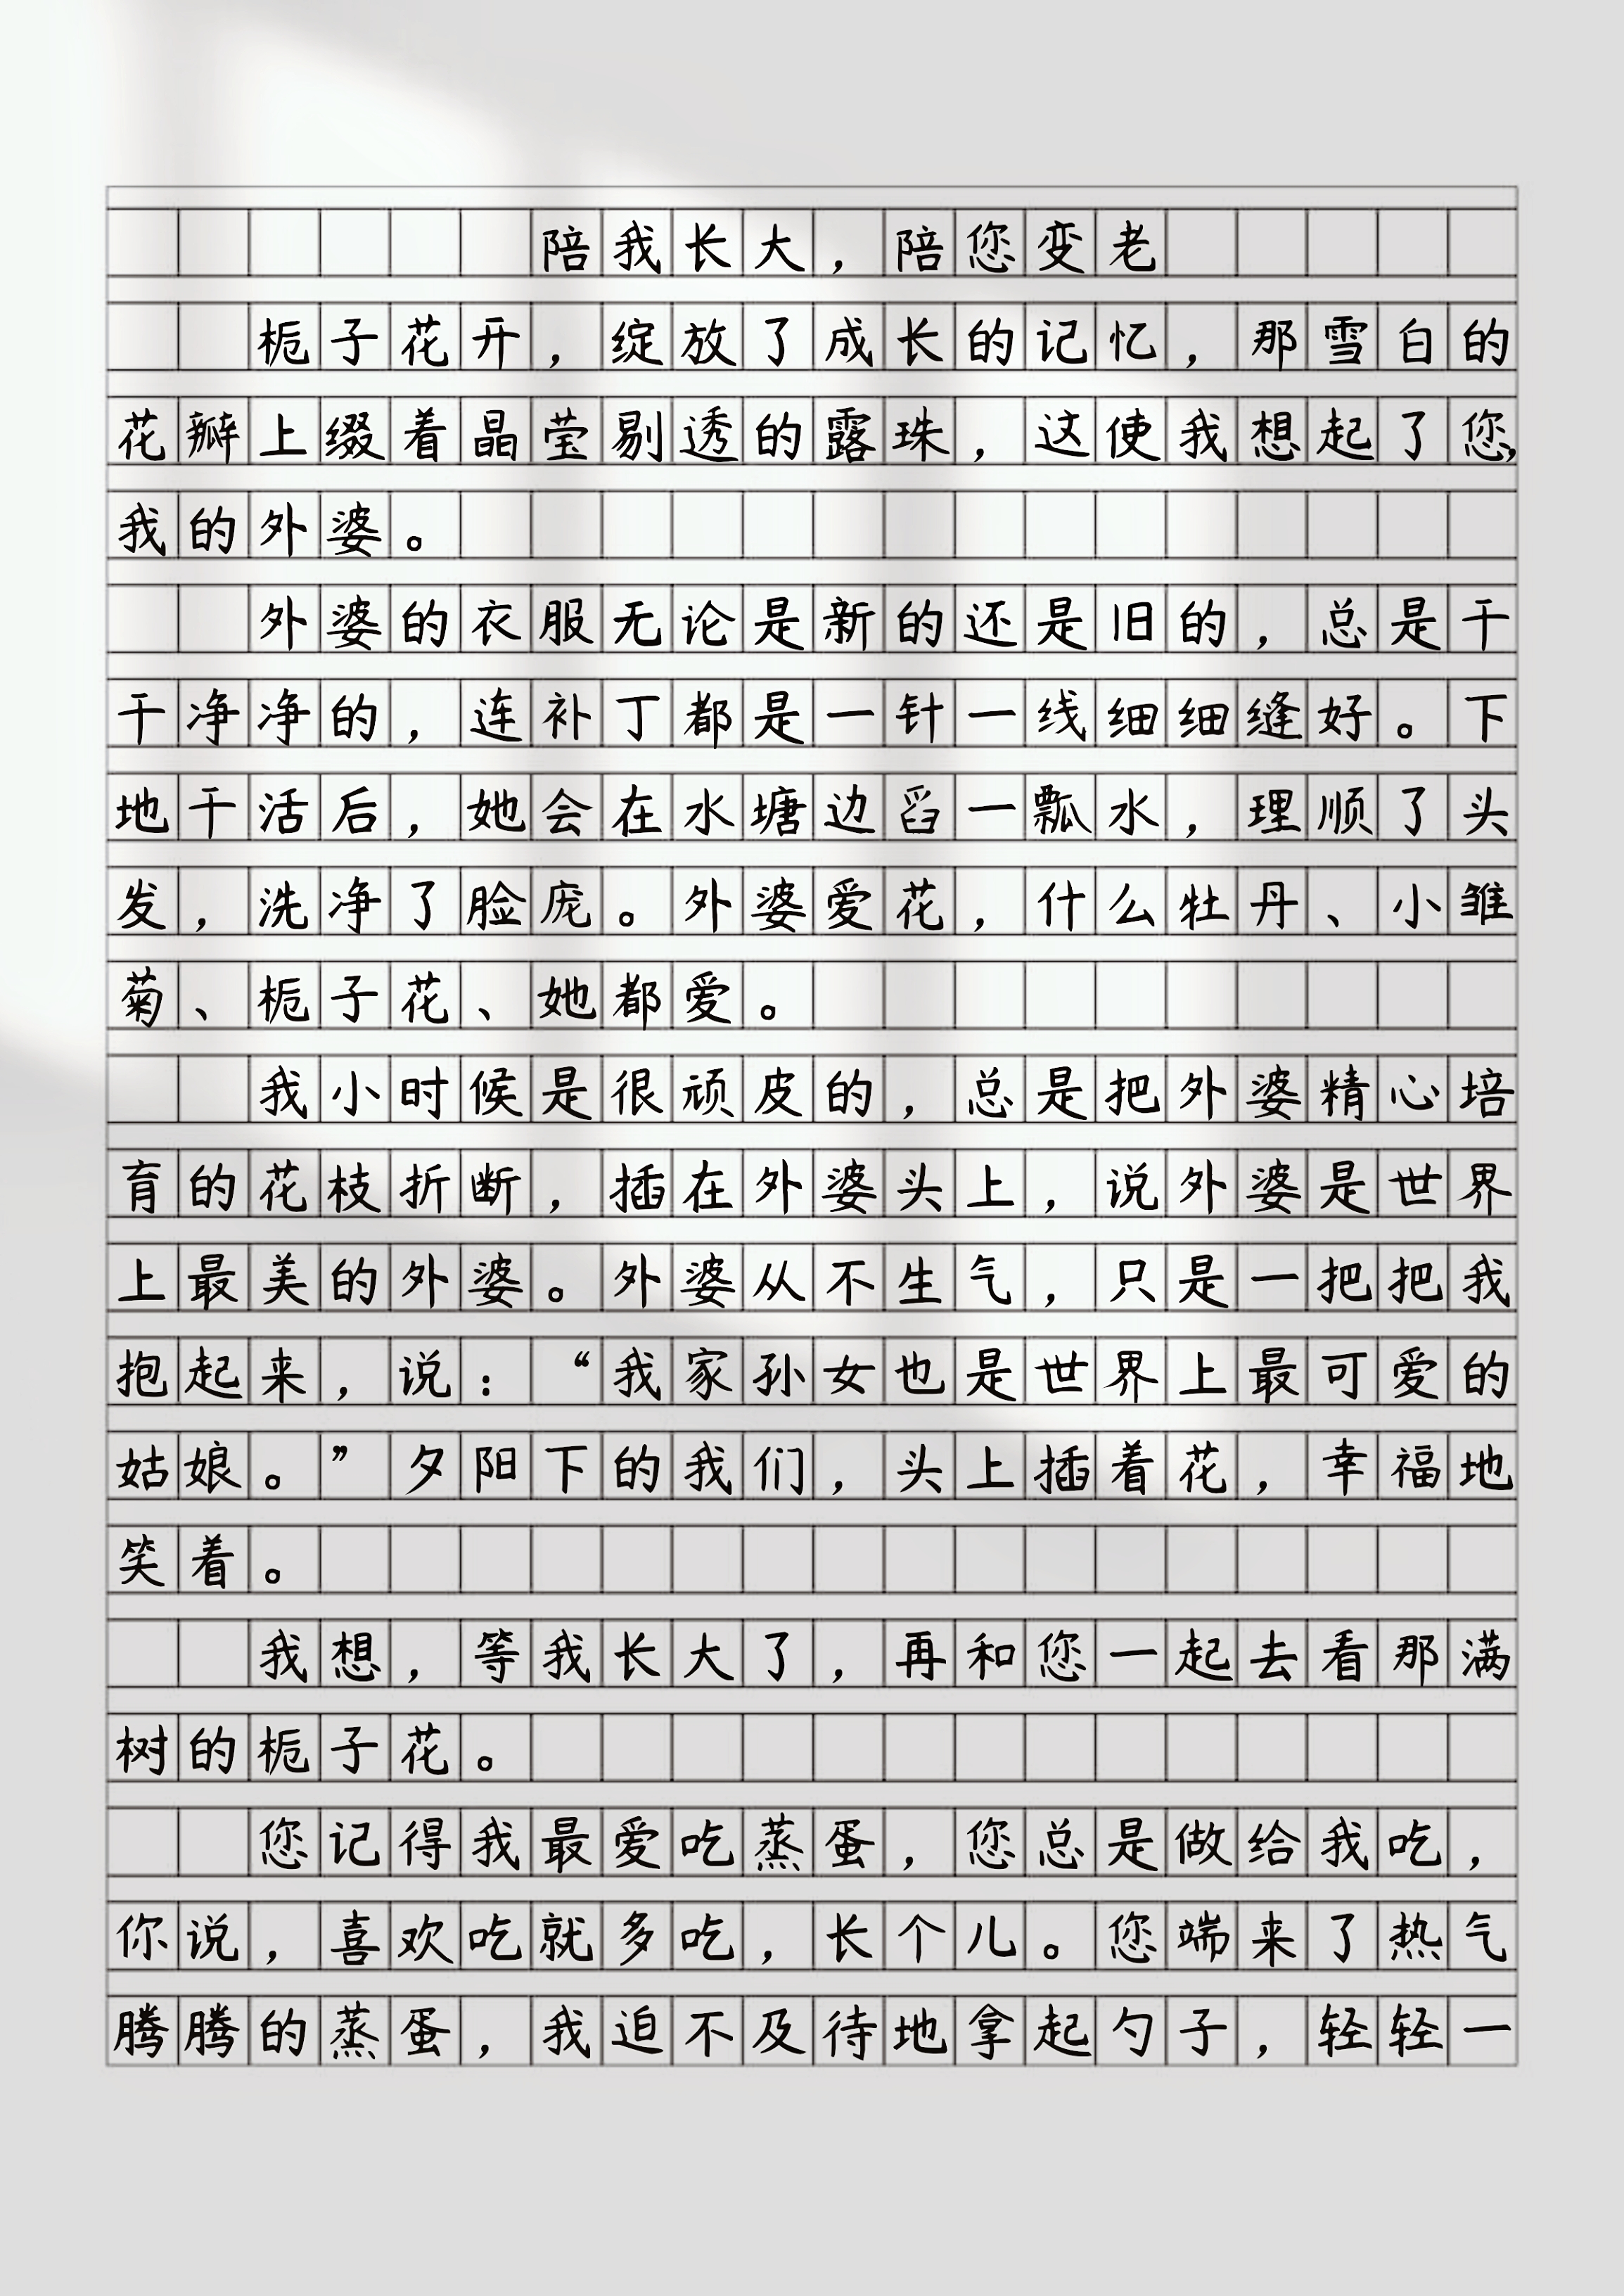 陪我长大，陪您变老
栀子花开，绽放了成长的记忆，那雪白的
花瓣上缀着晶莹剔透的露珠，这使我想起了您，
我的外婆。
外婆的衣服无论是新的还是旧的，总是干
干净净的，连补丁都是一针一线细细缝好。下
地干活后，她会在水塘边舀一瓢水，理顺了头
发，洗净了脸庞。外婆爱花，什么牡丹、小雏
菊、栀子花、她都爱。
我小时候是很顽皮的，总是把外婆精心培
育的花枝折断，插在外婆头上，说外婆是世界
上最美的外婆。外婆从不生气，只是一把把我
抱起来，说：“我家孙女也是世界上最可爱的
姑娘。”夕阳下的我们，头上插着花，幸福地
笑着。
我想，等我长大了，再和您一起去看那满
树的栀子花。
您记得我最爱吃蒸蛋，您总是做给我吃，
你说，喜欢吃就多吃，长个儿。您端来了热气
腾腾的蒸蛋，我迫不及待地拿起勺子，轻轻一